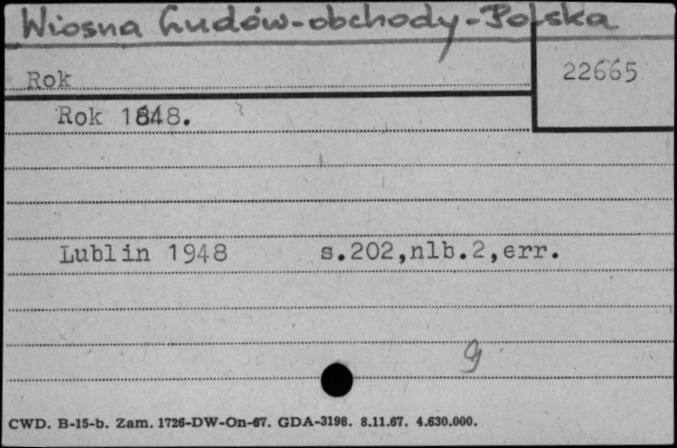 Wiosna Ludów-obchody-Polska
Rok
22665
Rok 1848.
Lublin 1948 s.202,nlb.2,err.
g
CWD. B-15-b. Zam. 1726-DW-On-67. GDA-3198. 8.11.67. 4.630.000.